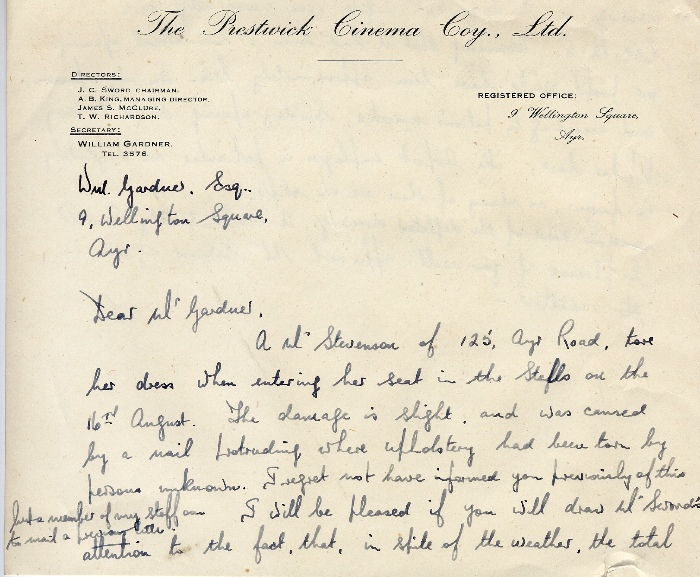 The Prestwick Cinema Coy., Ltd.
DIRECTORS:
J. C. SWORD CHAIRMAN.
A. B. KING. MANAGING DIRECTOR.
JAMES S. McCLURE.
T. W. RICHARDSON.
SECRETARY:
WILLIAM GARDNER.
TEL. 3576.
REGISTERED OFFICE:
9 Wellington Square,
Ayr.
Wm. Gardner, Esq..
9, Wellington Square,
Ayr.
Dear Mr Gardner,
A Mr Stevenson of 125, Ayr Road, tore
her dress when entering her seat in the Stalls on the
16th August. The damage is slight, and was caused
by a nail protruding where upholstery had been torn by
persons unknown. I regret not have informed you previously of this
but a member of my staff
to mail a previous letter.
I will be pleased if you will draw Mr Sword's
attention to the fact, that, in spite of the weather, the total